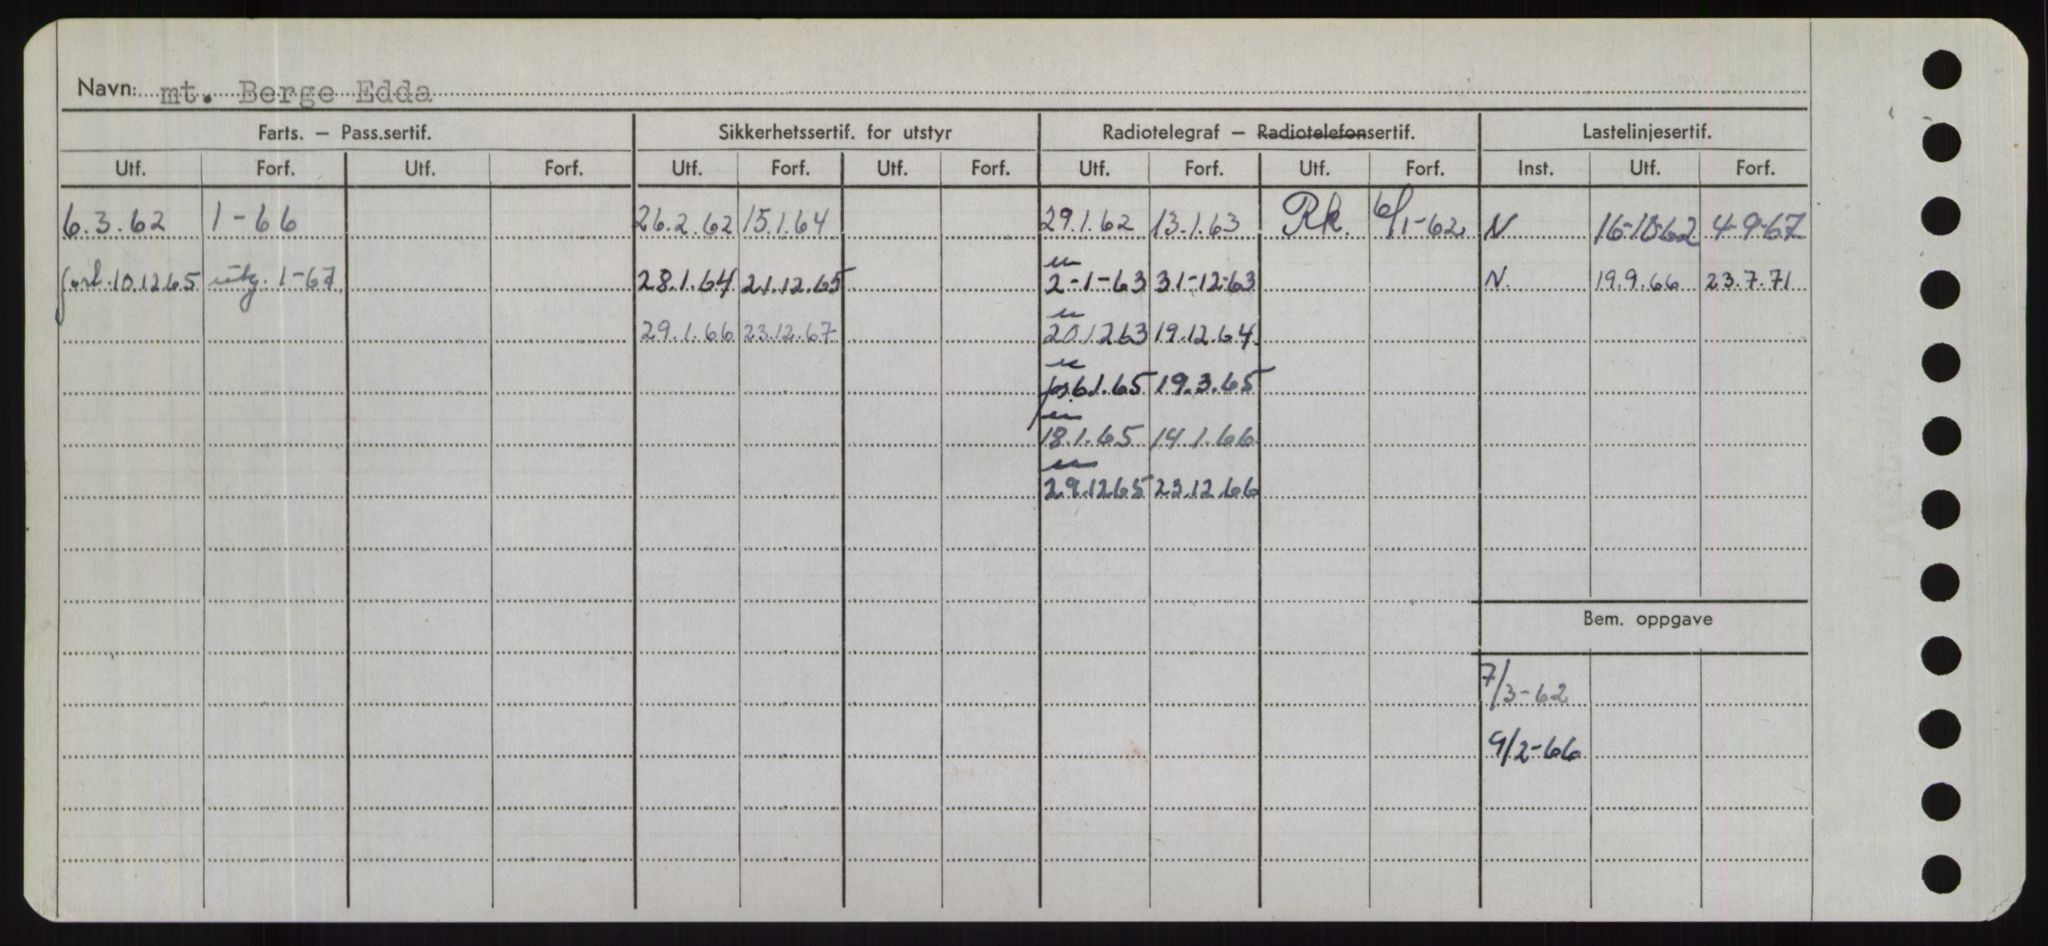 Navn: mt. Berge Edda
Farts. — Pass.sertif. Sikkerhetssertif. for utstyr Radiotelegraf — Radiotelefonsertif. Lastelinjesertif.
Utf. Forf. Utf. Forf. Utf. Forf. Utf. Forf. Utf. Forf. Utf. Forf. Inst. Utf. Forf.
6.3.62 1-66 26.2.62 15.1.64 29.1.62 13.1.63 Rk. 6/1-62 N 16-10-62 4-9-67
forl. 10.12.65 utg. 1-67 28.1.64 21.12.65 2-1-63 31-12-63 N 19.9.66 23.7.71
29.1.66 23.12.67 20.12.63 19.12.64
6.1.65 19.3.65
18.1.65 14.1.66
29.12.65 23.12.66
Bem. oppgave
7/3-62
9/2-66